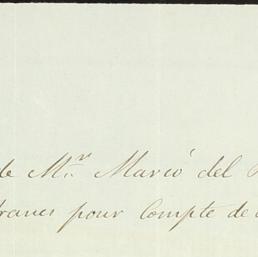 de Mr. Marcó del
francs pour Compte de